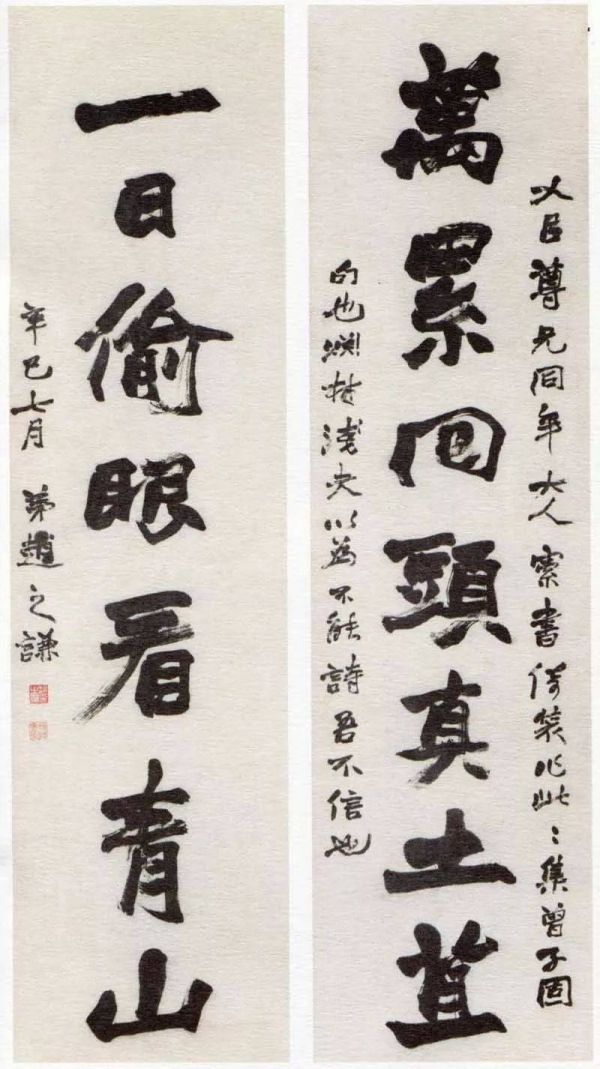 尊兄同年大人索書倚裝作此〻集曾子固
萬累回頭真土苴
句也淵材淺夫以為不能詩吾不信也
一日偷眼看青山
辛巳七月 弟趙之謙